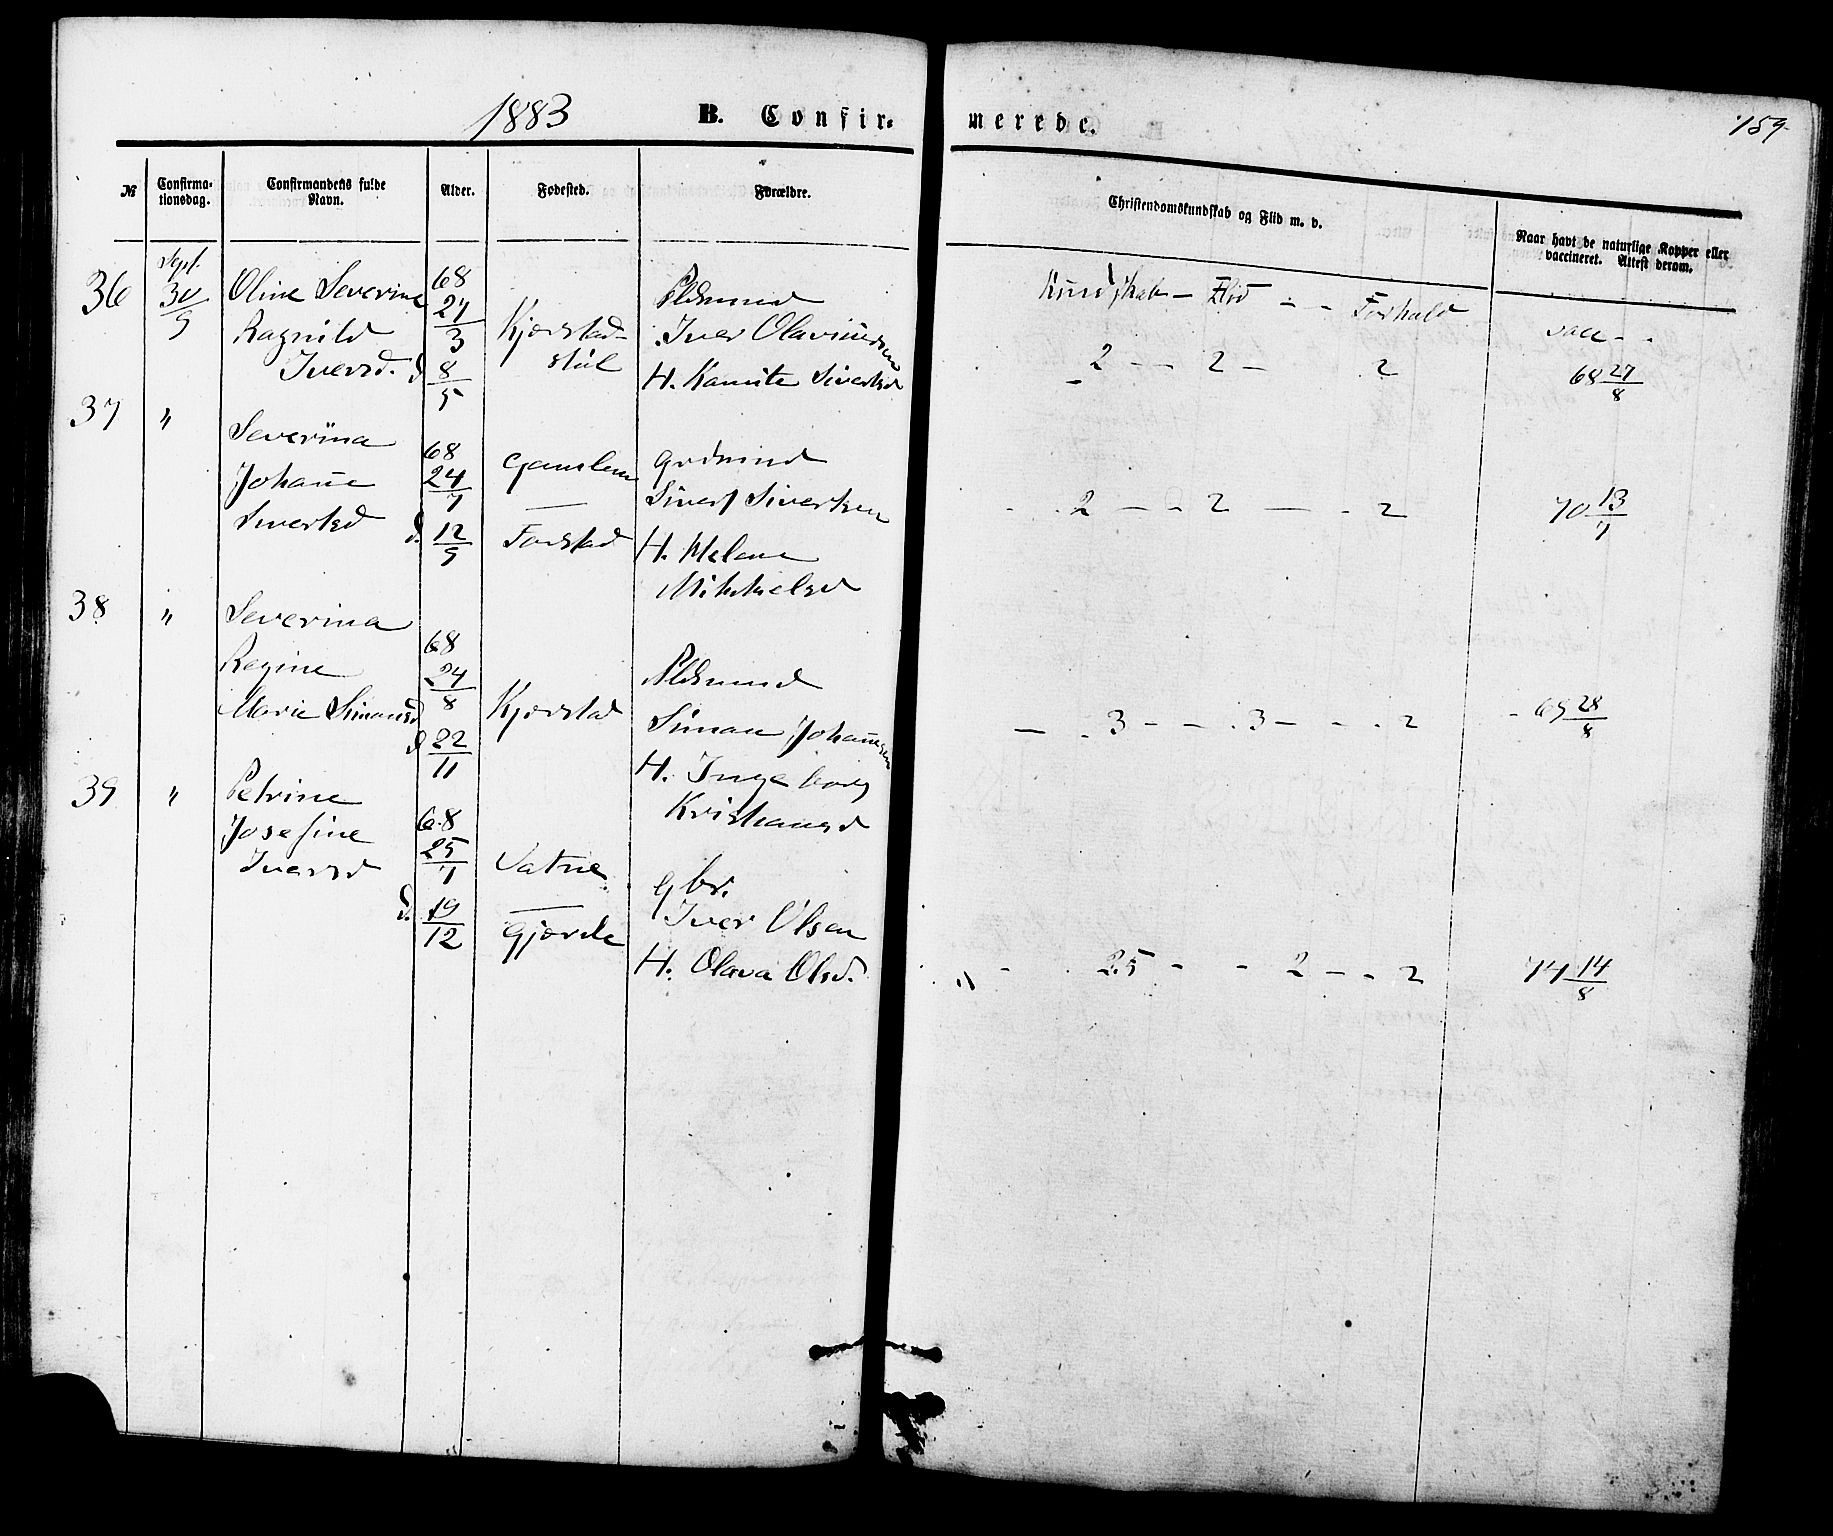 1883 B. Confirmerede. 159.
№ Confirmationsdag. Confirmandens fulde Navn. Alder. Fødested. Forældre. Christendomskundskab og Flid m. v. Naar havt de naturlige Kopper eller vaccineret. Attest derom.
36 Sept. 30/9 Oline Severine 68 27/3
Ragnild
Iversd. d. 8/5
Kjørstad-
støl
Iver Olavinusen
H. Sivertsd.
Kundskab – Flid – – Forhold
2 – – 2 – 2
vacc – -
68 27/8
37 "
Severina
Johanne
Sivertsd
68 24/7
d. 12/9
Gamlem
—
Farstad
Grdmnd
Sivert Sivertsen
H. Melene
Mikkelsd
2 – 2 – - 2
70 13/7
38 "
Severina
Regine
Marie Simonsd
68 24/8
d 22/11
Kjørstad
Simon Johannesen
H. Ingeborg
Kristiansd
– - 3 – – . 3 – – . 2
- 69 28/8
39 "
Petrine
Josefine
Iversd
68 25/7
d. 19/12
Vatne
—
Gjærde
gbr.
Iver Olsen
H. Olava Olsd.
- . 2.5 - - 2 – - 2
74 14/8